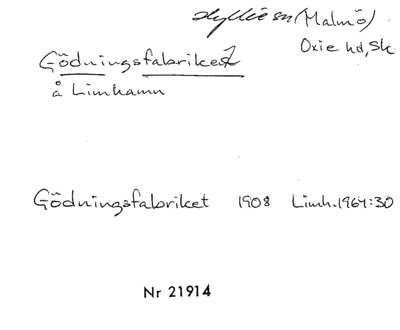 Hyllie sn (Malmö)
Oxie hd, Sk
Gödningsfabriket
å Limhamn
Gödningsfabriket 1908 Limh. 1964:30
Nr 21914